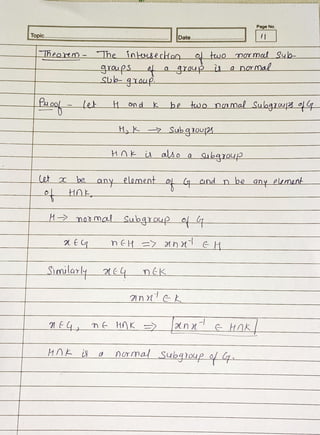 Page No.
Topic
Date
11
Theorem - The intersection of two normal Sub-
groups of a group is a normal
Sub-group.
Proof - Let H and K be two normal Subgroups of G
H, K → Subgroups
H∩K is also a subgroup
Let x be any element of G and n be any element
of H∩K.
H → normal Subgroup of G
x∈G n∈H => xnx⁻¹ ∈ H
Similarly x∈G n∈K
xnx⁻¹ ∈ K
x∈G, n∈ H∩K => xnx⁻¹ ∈ H∩K
H∩K is a normal Subgroup of G.